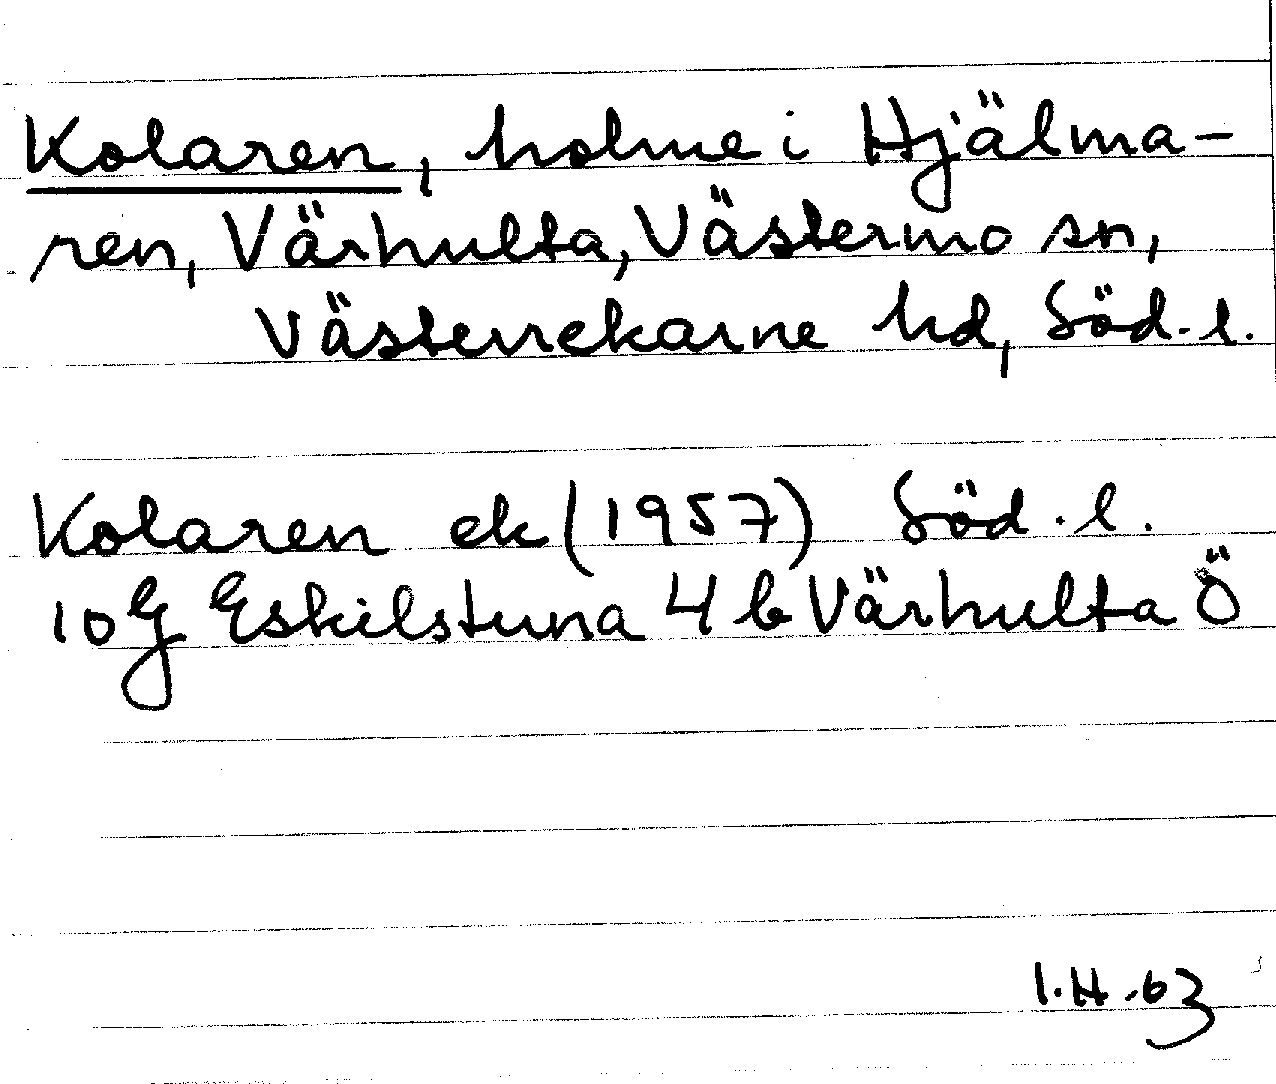 Kolaren, holme i Hjälma-
ren, Värhulta, Västermo sn,
Västerrekarne hd, Söd.l.
Kolaren ek (1957) Söd.l.
10G Eskilstuna 4b Värhulta Ö
I.H.63